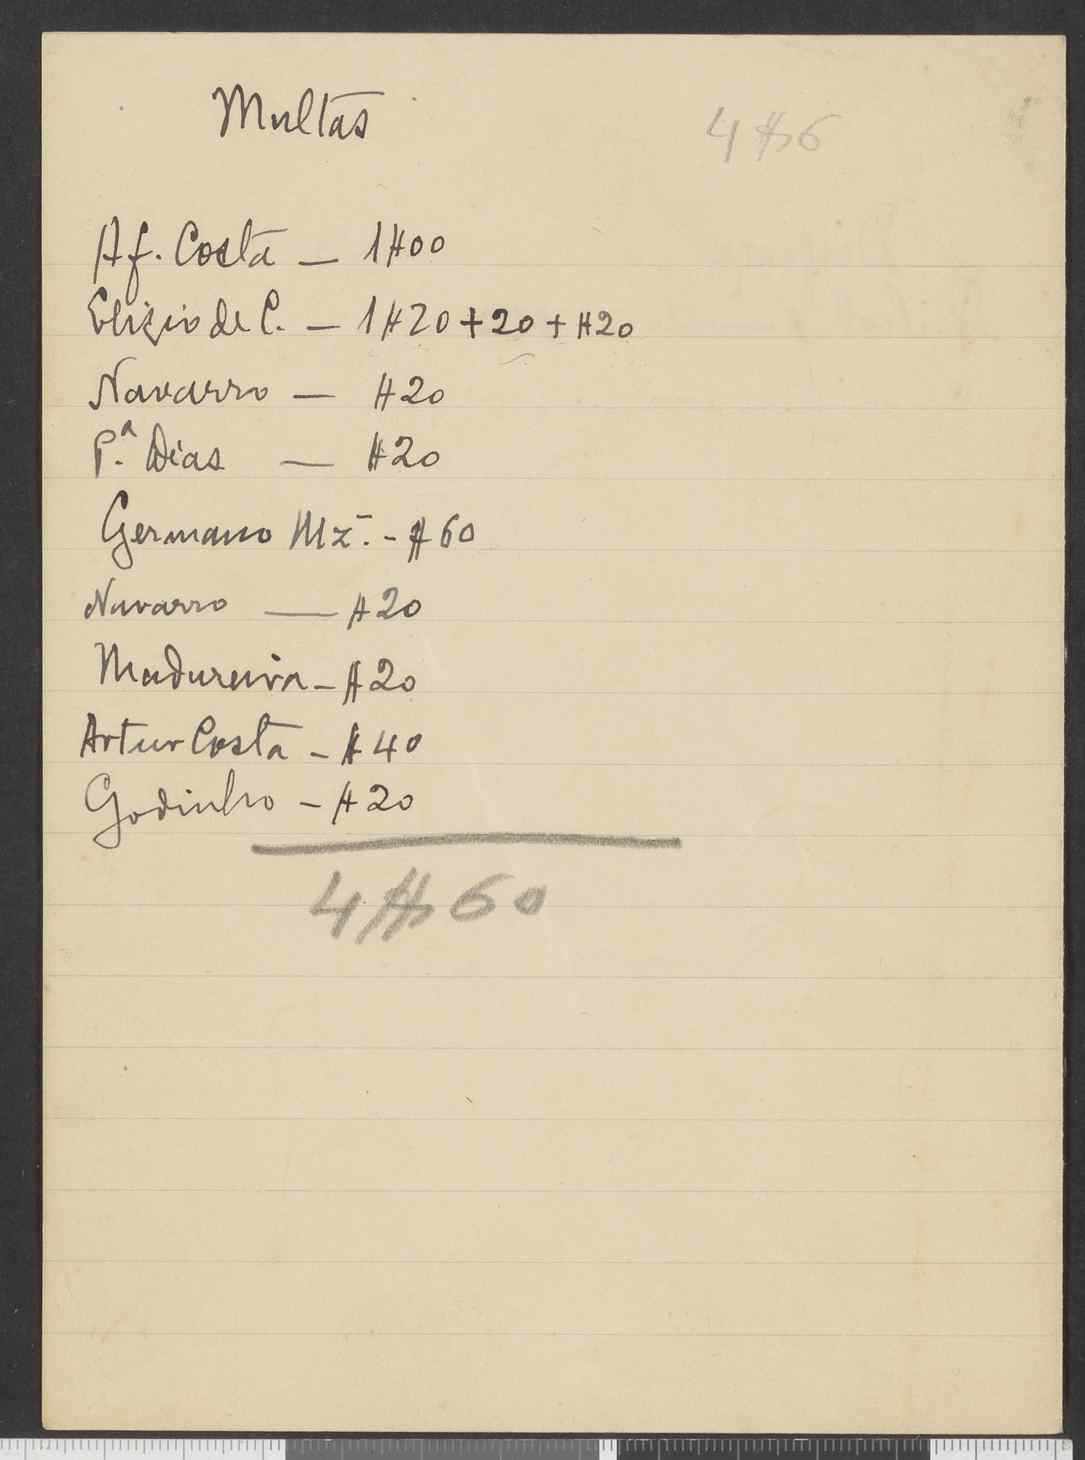 Multas
4$6
Af. Costa — 1$00
Elizio de C. — 1$20 + 20 + $20
Navarro — $20
P.ª Dias — $20
Germano Mz. - $60
Navarro — $20
Madureira - $20
Artur Costa - $40
Godinho - $20
4$60